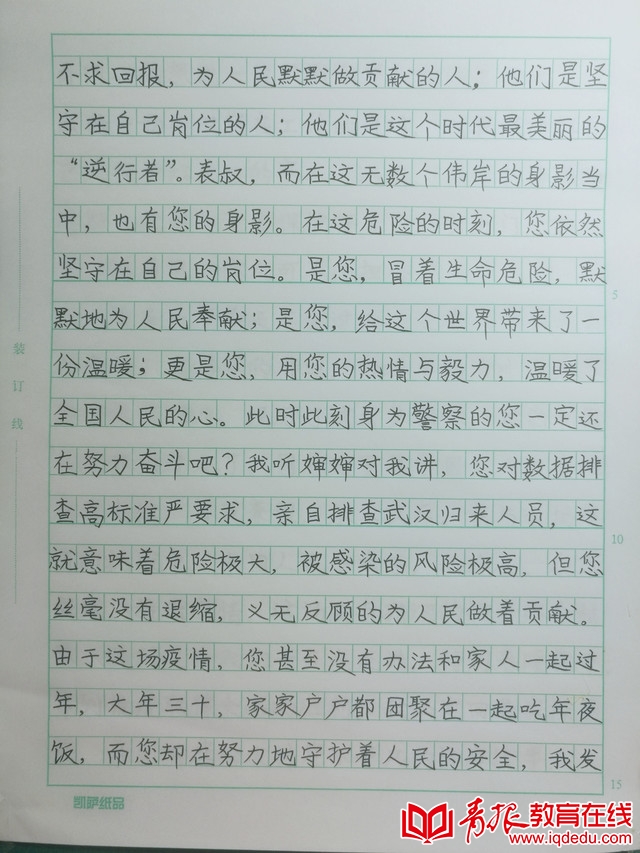 不求回报，为人民默默做贡献的人；他们是坚
守在自己岗位的人；他们是这个时代最美丽的
“逆行者”。表叔，而在这无数个伟岸的身影当
中，也有您的身影。在这危险的时刻，您依然
坚守在自己的岗位。是您，冒着生命危险，默
5
默地为人民奉献；是您，给这个世界带来了一
份温暖；更是您，用您的热情与毅力，温暖了
全国人民的心。此时此刻身为警察的您一定还
在努力奋斗吧？我听婶婶对我讲，您对数据排
查高标准严要求，亲自排查武汉归来人员，这
10
就意味着危险极大，被感染的风险极高，但您
丝毫没有退缩，义无反顾的为人民做着贡献。
由于这场疫情，您甚至没有办法和家人一起过
年，大年三十，家家户户都团聚在一起吃年夜
饭，而您却在努力地守护着人民的安全，我发
15
装订线
凯萨纸品
青报教育在线
www.iqdedu.com